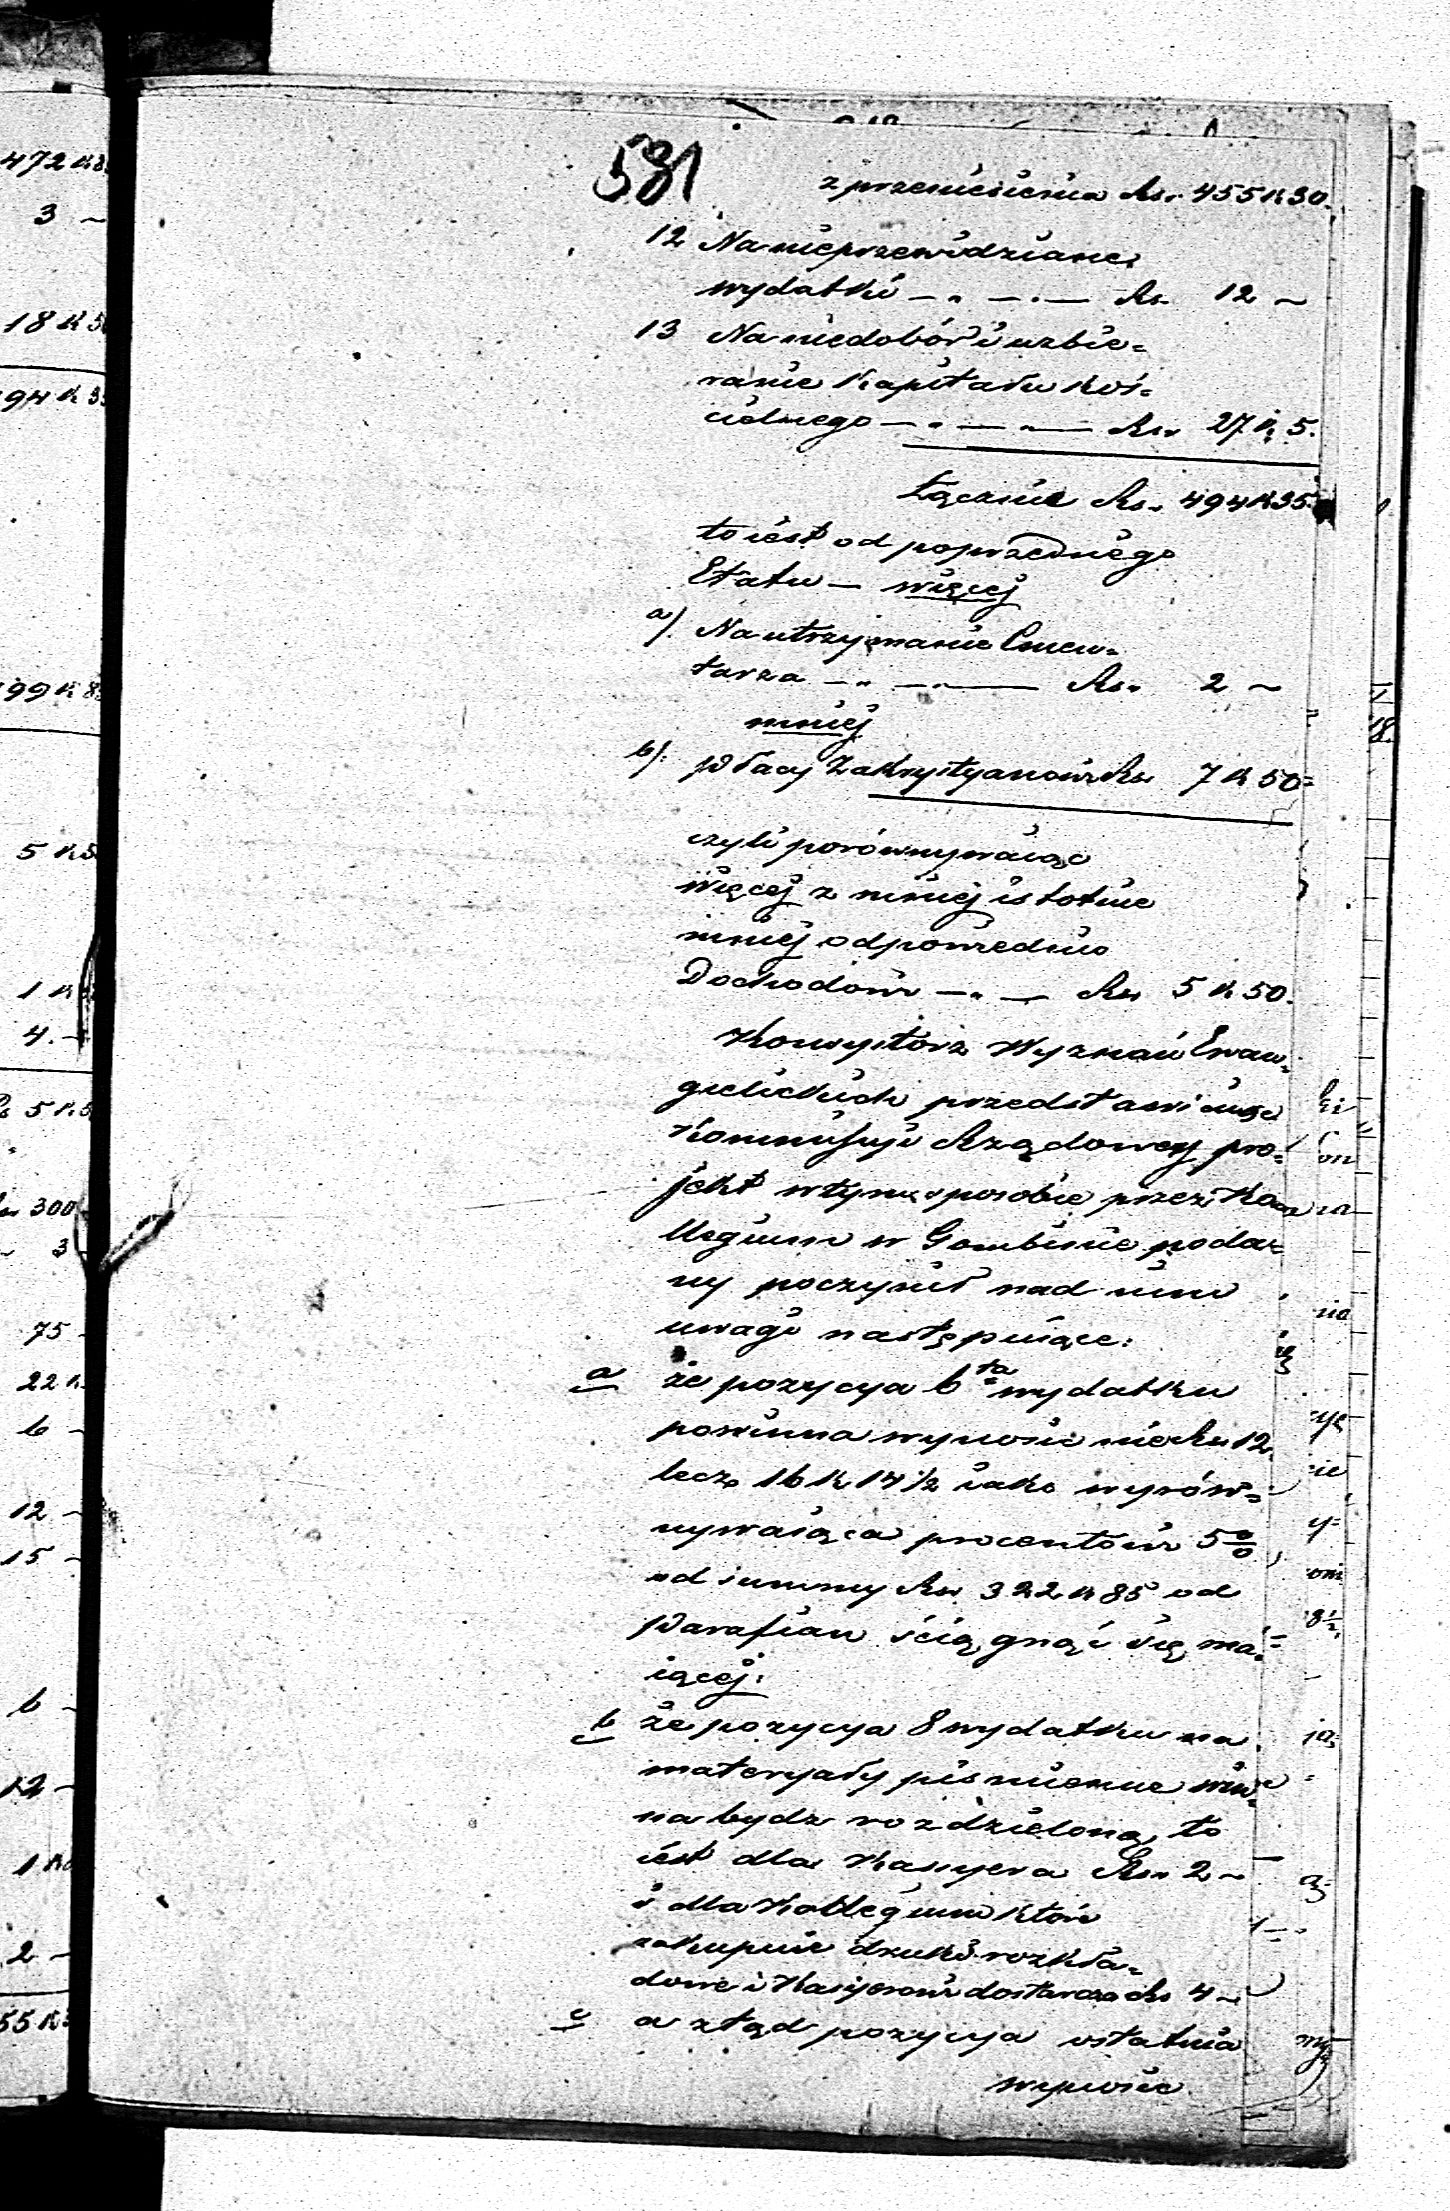 581
z przeniesienia Rs. 455 K 30.
12 Na nieprzewidziane
wydatki — „ — „ — Rs. 12 ~
13 Na niedobór i uzbie=
ranie Kapitału Koś=
cielnego — „ — „ — Rs. 27 K 5.
Łącznie Rs. 494 K 35.
to iest od poprzedniego
Etatu — więcej
a/. Na utrzymanie Cmen=
tarza — „ — „ — Rs. 2 ~
mniej
b/. Płacy Zakrystyanowi Rs. 7 K 50=
czyli porównywaiąc
więcej z mniej istotnie
mniej odpowiednio
Dochodom — „ — Rs. 5 K 50.
Konsystorz Wyznań Ewan=
gielickich przedstawiaiąc
Kommissyi Rządowej pro=
jekt w tym sposobie przez Ko=
llegium w Gombinie poda=
ny poczynił nad nim
uwagi następuiące:
a że pozycya 6ta wydatku
powinna wynosić nie Rs. 12
lecz 16 K 14 1/2 iako wyrów=
nywaiąca procentowi 5 %
od summy Rs. 322 K 85 od
Parafian ściągnąć się ma=
iącej.
b że pozycya 8 wydatku na
materyały piśmienne win=
na bydz rozdzieloną, to
iest dla Kassyera Rs. 2 ~
i dla Kollegium które
zakupuie druki rozkła=
dowe i Kasyerowi dostarcza Rs. 4 ~
c a ztąd pozycya ostatnia
wynosić
472 K 8
3 ~
18 K 5
94 K 3
99 K 8
5 K 5
1 K
4. ~
5 K 5
300
3
75
22 K
6 ~
12 ~
15 ~
6 ~
12 ~
1 K
2 ~
55 K